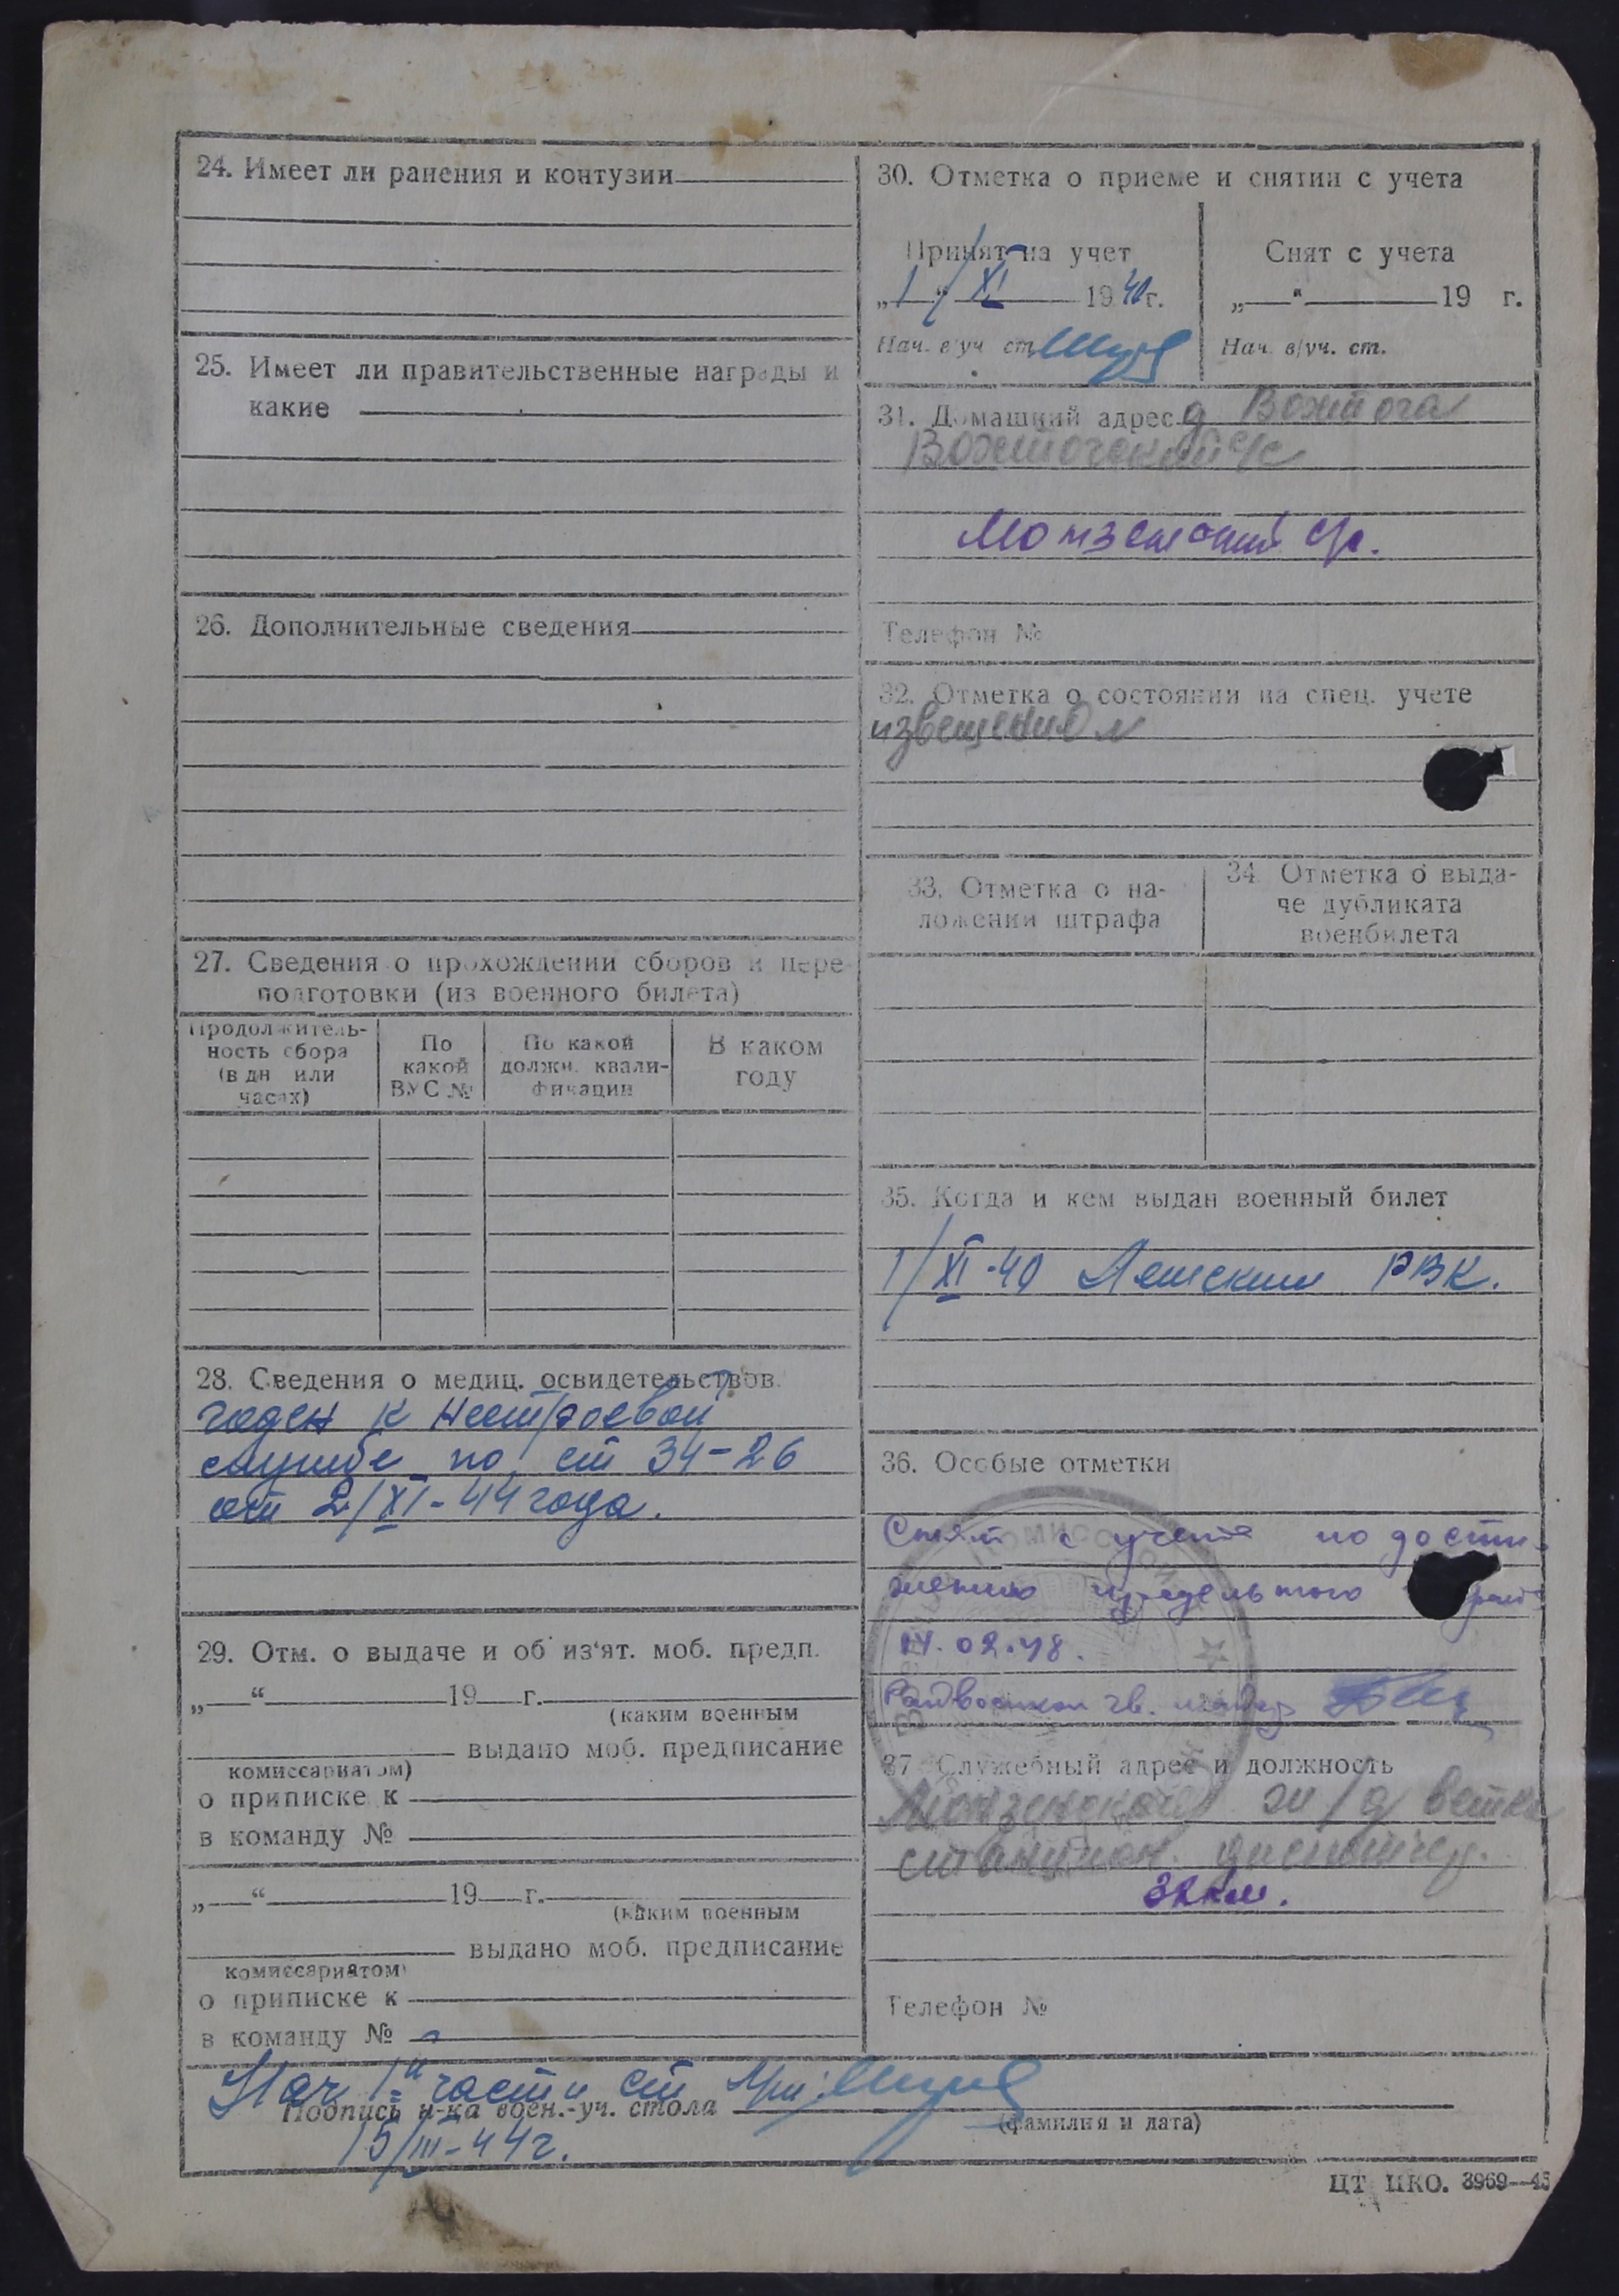 24. Имеет ли ранения и контузии
25. Имеет ли правительственные награды и
какие
26. Дополнительные сведения
27. Сведения о прохождении сборов и пере-
подготовки (из военного билета)
Продолжитель-
ность сбора
(в дн или
часах)
По
какой
ВУС №
По какой
должн. квали-
фикации
В каком
году
28. Сведения о медиц. освидетельствов.
годен к нестроевой
службе по ст 34-26
от 2/XI-44 года.
29. Отм. о выдаче и об из'ят. моб. предп.
„ “ 19 г.
(каким военным
выдано моб. предписание
комиссариатом)
о приписке к
в команду №
„ “ 19 г.
(каким военным
выдано моб. предписание
комиссариатом)
о приписке к
в команду №
30. Отметка о приеме и снятии с учета
Принят на учет
„1“ XI 1940 г.
Нач. в/уч. ст.
Снят с учета
„ “ 19 г.
Нач. в/уч. ст.
31. Домашний адрес д Вохтога
Вохтогский с/с
Монзенский с/с.
Телефон №
32. Отметка о состоянии на спец. учете
извещением
33. Отметка о на-
ложении штрафа
34. Отметка о выда-
че дубликата
военбилета
35. Когда и кем выдан военный билет
1/XI-40 РВК.
36. Особые отметки
Снят с учета по дости-
жению предельного
02.48.
Райвоенком гв. майор
37. Служебный адрес и должность
Монзенская ж/д ветка
станцион. диспетчер.
32 км.
Телефон №
Нач 1й части ст
Подпись н-ка воен.-уч. стола
(фамилия и дата)
15/III-44г.
ЦТ ЦКО. 3969—45